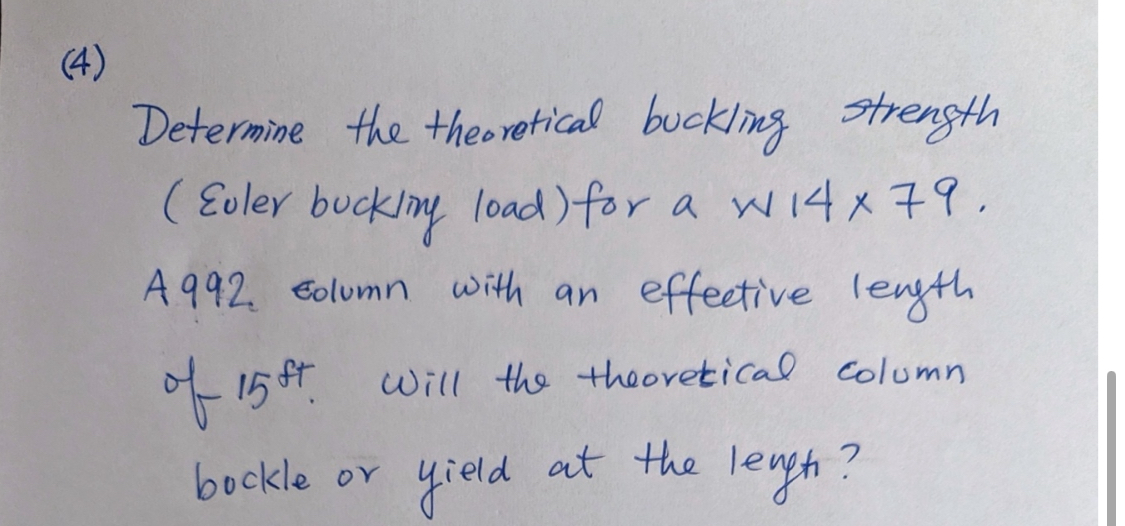 (4)
Determine the theoretical buckling strength
(Euler buckling load) for a W14 x 79.
A992 column with an effective length
of 15 ft. Will the theoretical column
bockle or yield at the lengh?